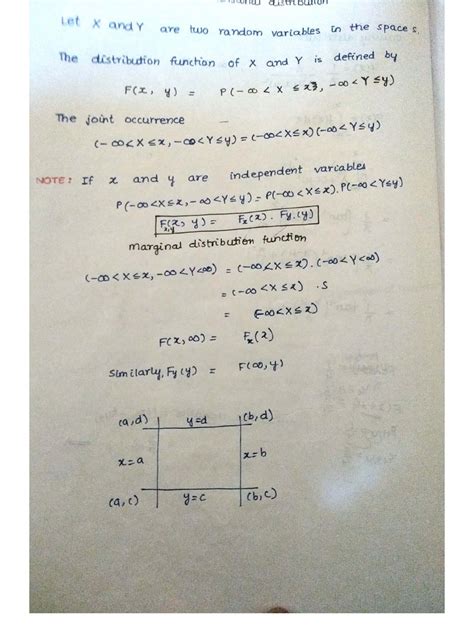 distribution
Let X and Y are two random variables in the space S.
The distribution function of X and Y is defined by
F(x, y) = P(-∞ < X ≤ x, -∞ < Y ≤ y)
The joint occurrence –
(-∞<X≤x, -∞<Y≤y) = (-∞<X≤x) (-∞<Y≤y)
NOTE: If x and y are independent variables
P(-∞<X≤x, -∞<Y≤y) = P(-∞<X≤x). P(-∞<Y≤y)
F_{x,y}(x, y) = F_x(x) . F_y.(y)
marginal distribution function
(-∞<X≤x, -∞<Y<∞) = (-∞<X≤x). (-∞<Y<∞)
= (-∞<X≤x) . S
= (-∞<X≤x)
F(x,∞) = F_x(x)
Similarly, Fy(y) = F(∞,y)
(a,d) y=d (b,d)
x=a x=b
(a,c) y=c (b,c)